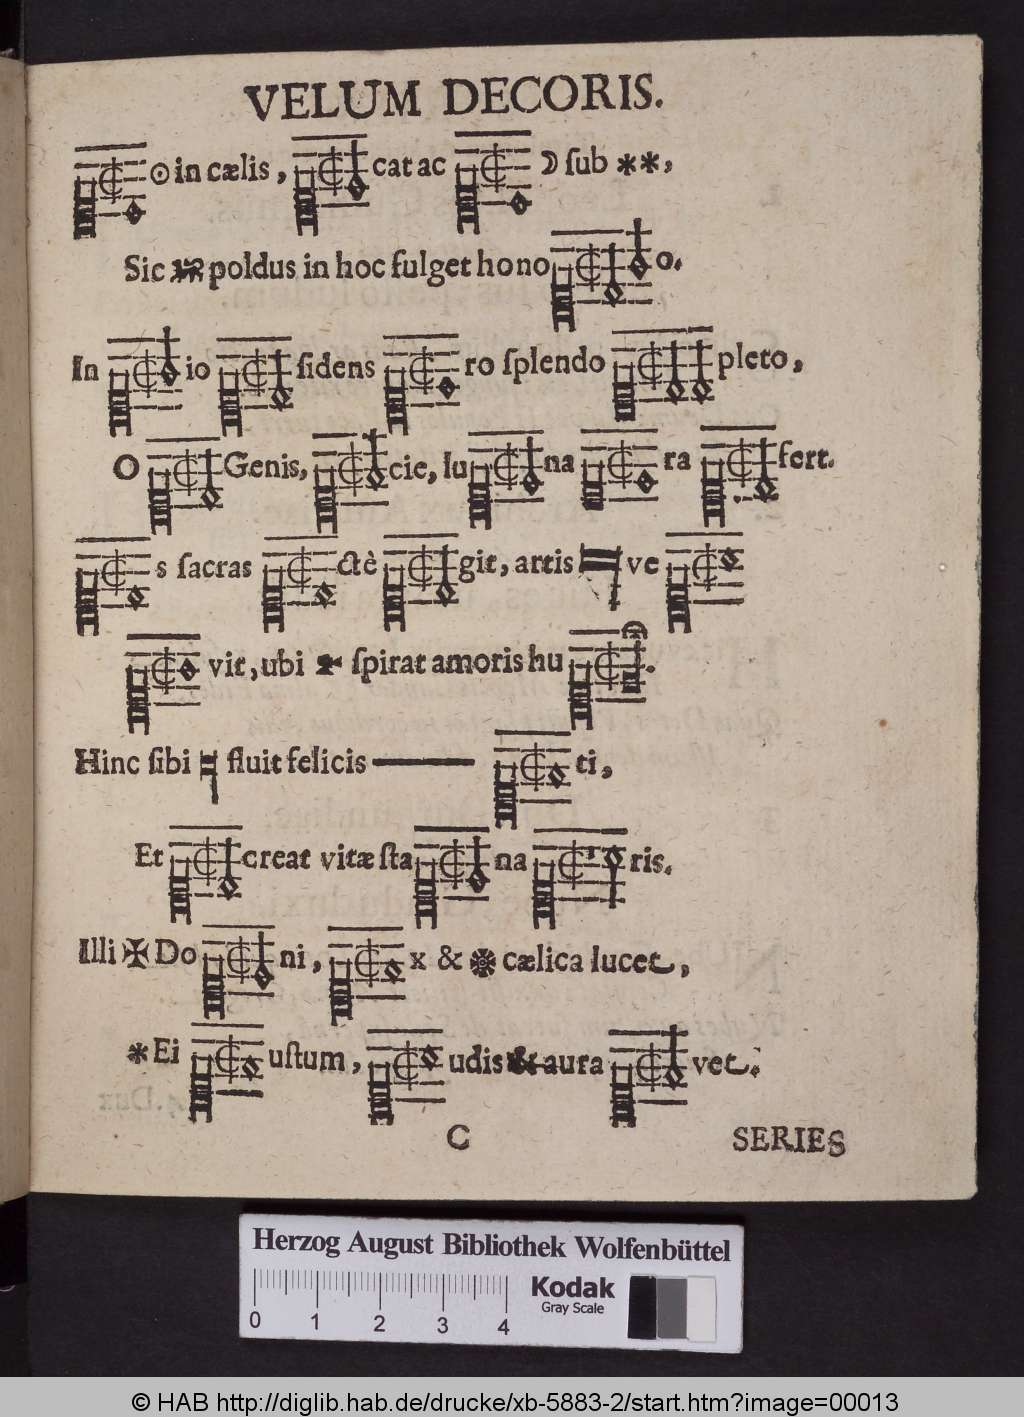 VELUM DECORIS.
☉ in cælis, cat ac ☽ ſub **,
Sic poldus in hoc fulget hono o.
In io ſidens ro ſplendo pleto,
O Genis, cie, lu na ra fert.
s ſacras ctè git, artis ve
vit, ubi ſpirat amoris hu .
Hinc ſibi fluit felicis ti,
Et creat vitæ ſta na ris.
Illi ✠ Do ni, x & cælica lucet,
* Ei uſtum, udis & aura vet.
C SERIES
Herzog August Bibliothek Wolfenbüttel
Kodak
Gray Scale
0 1 2 3 4
© HAB http://diglib.hab.de/drucke/xb-5883-2/start.htm?image=00013